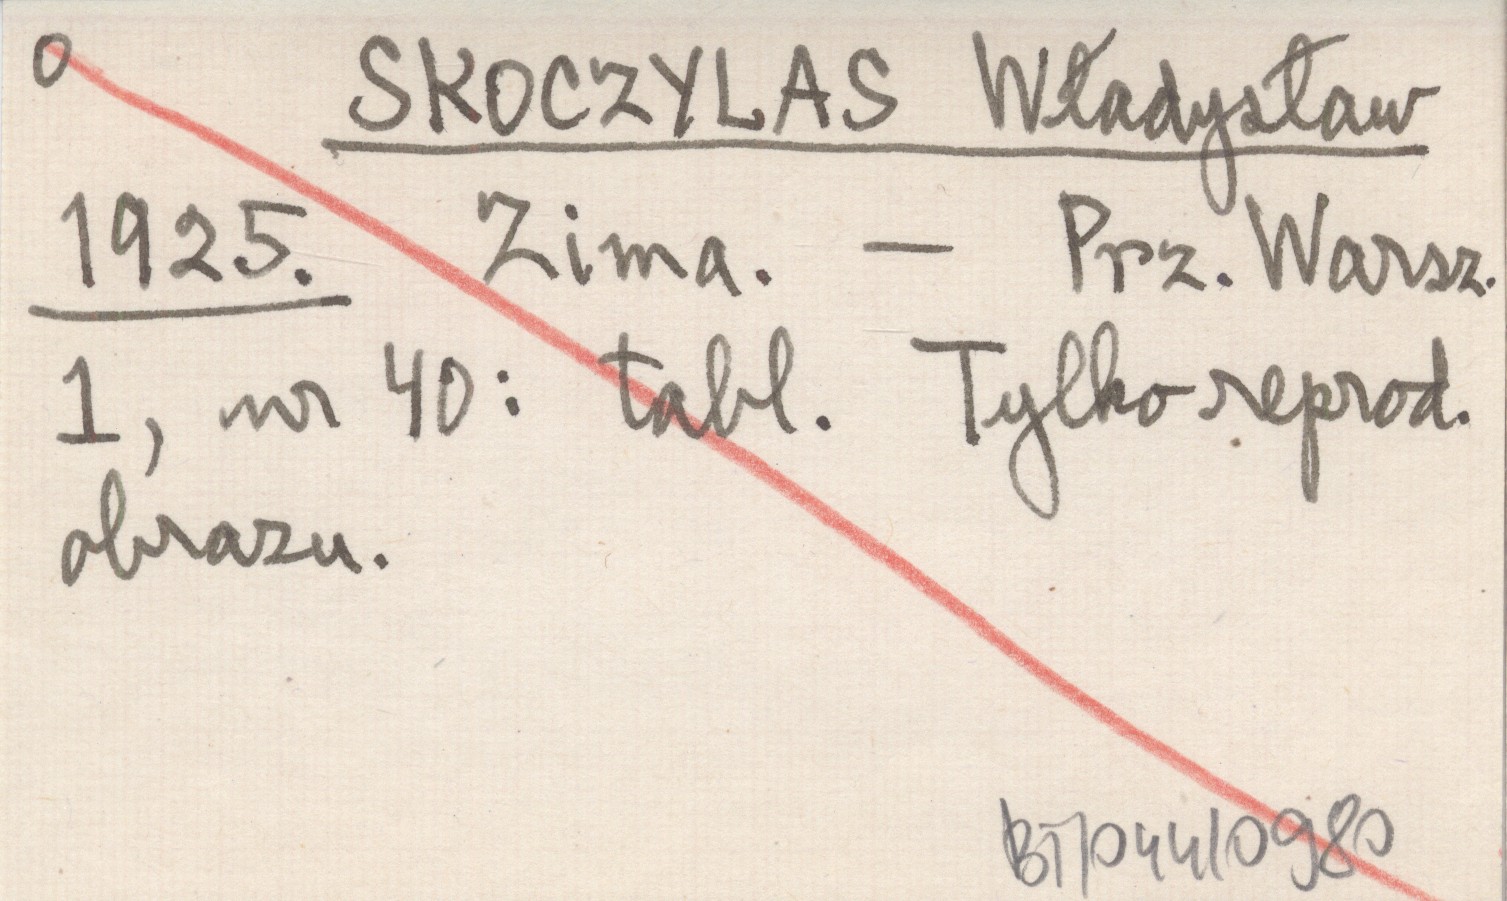 0 SKOCZYLAS Władysław
1925. Zima. — Prz. Warsz.
1, nr 40: tabl. Tylko reprod.
obrazu.
BT/044/0980